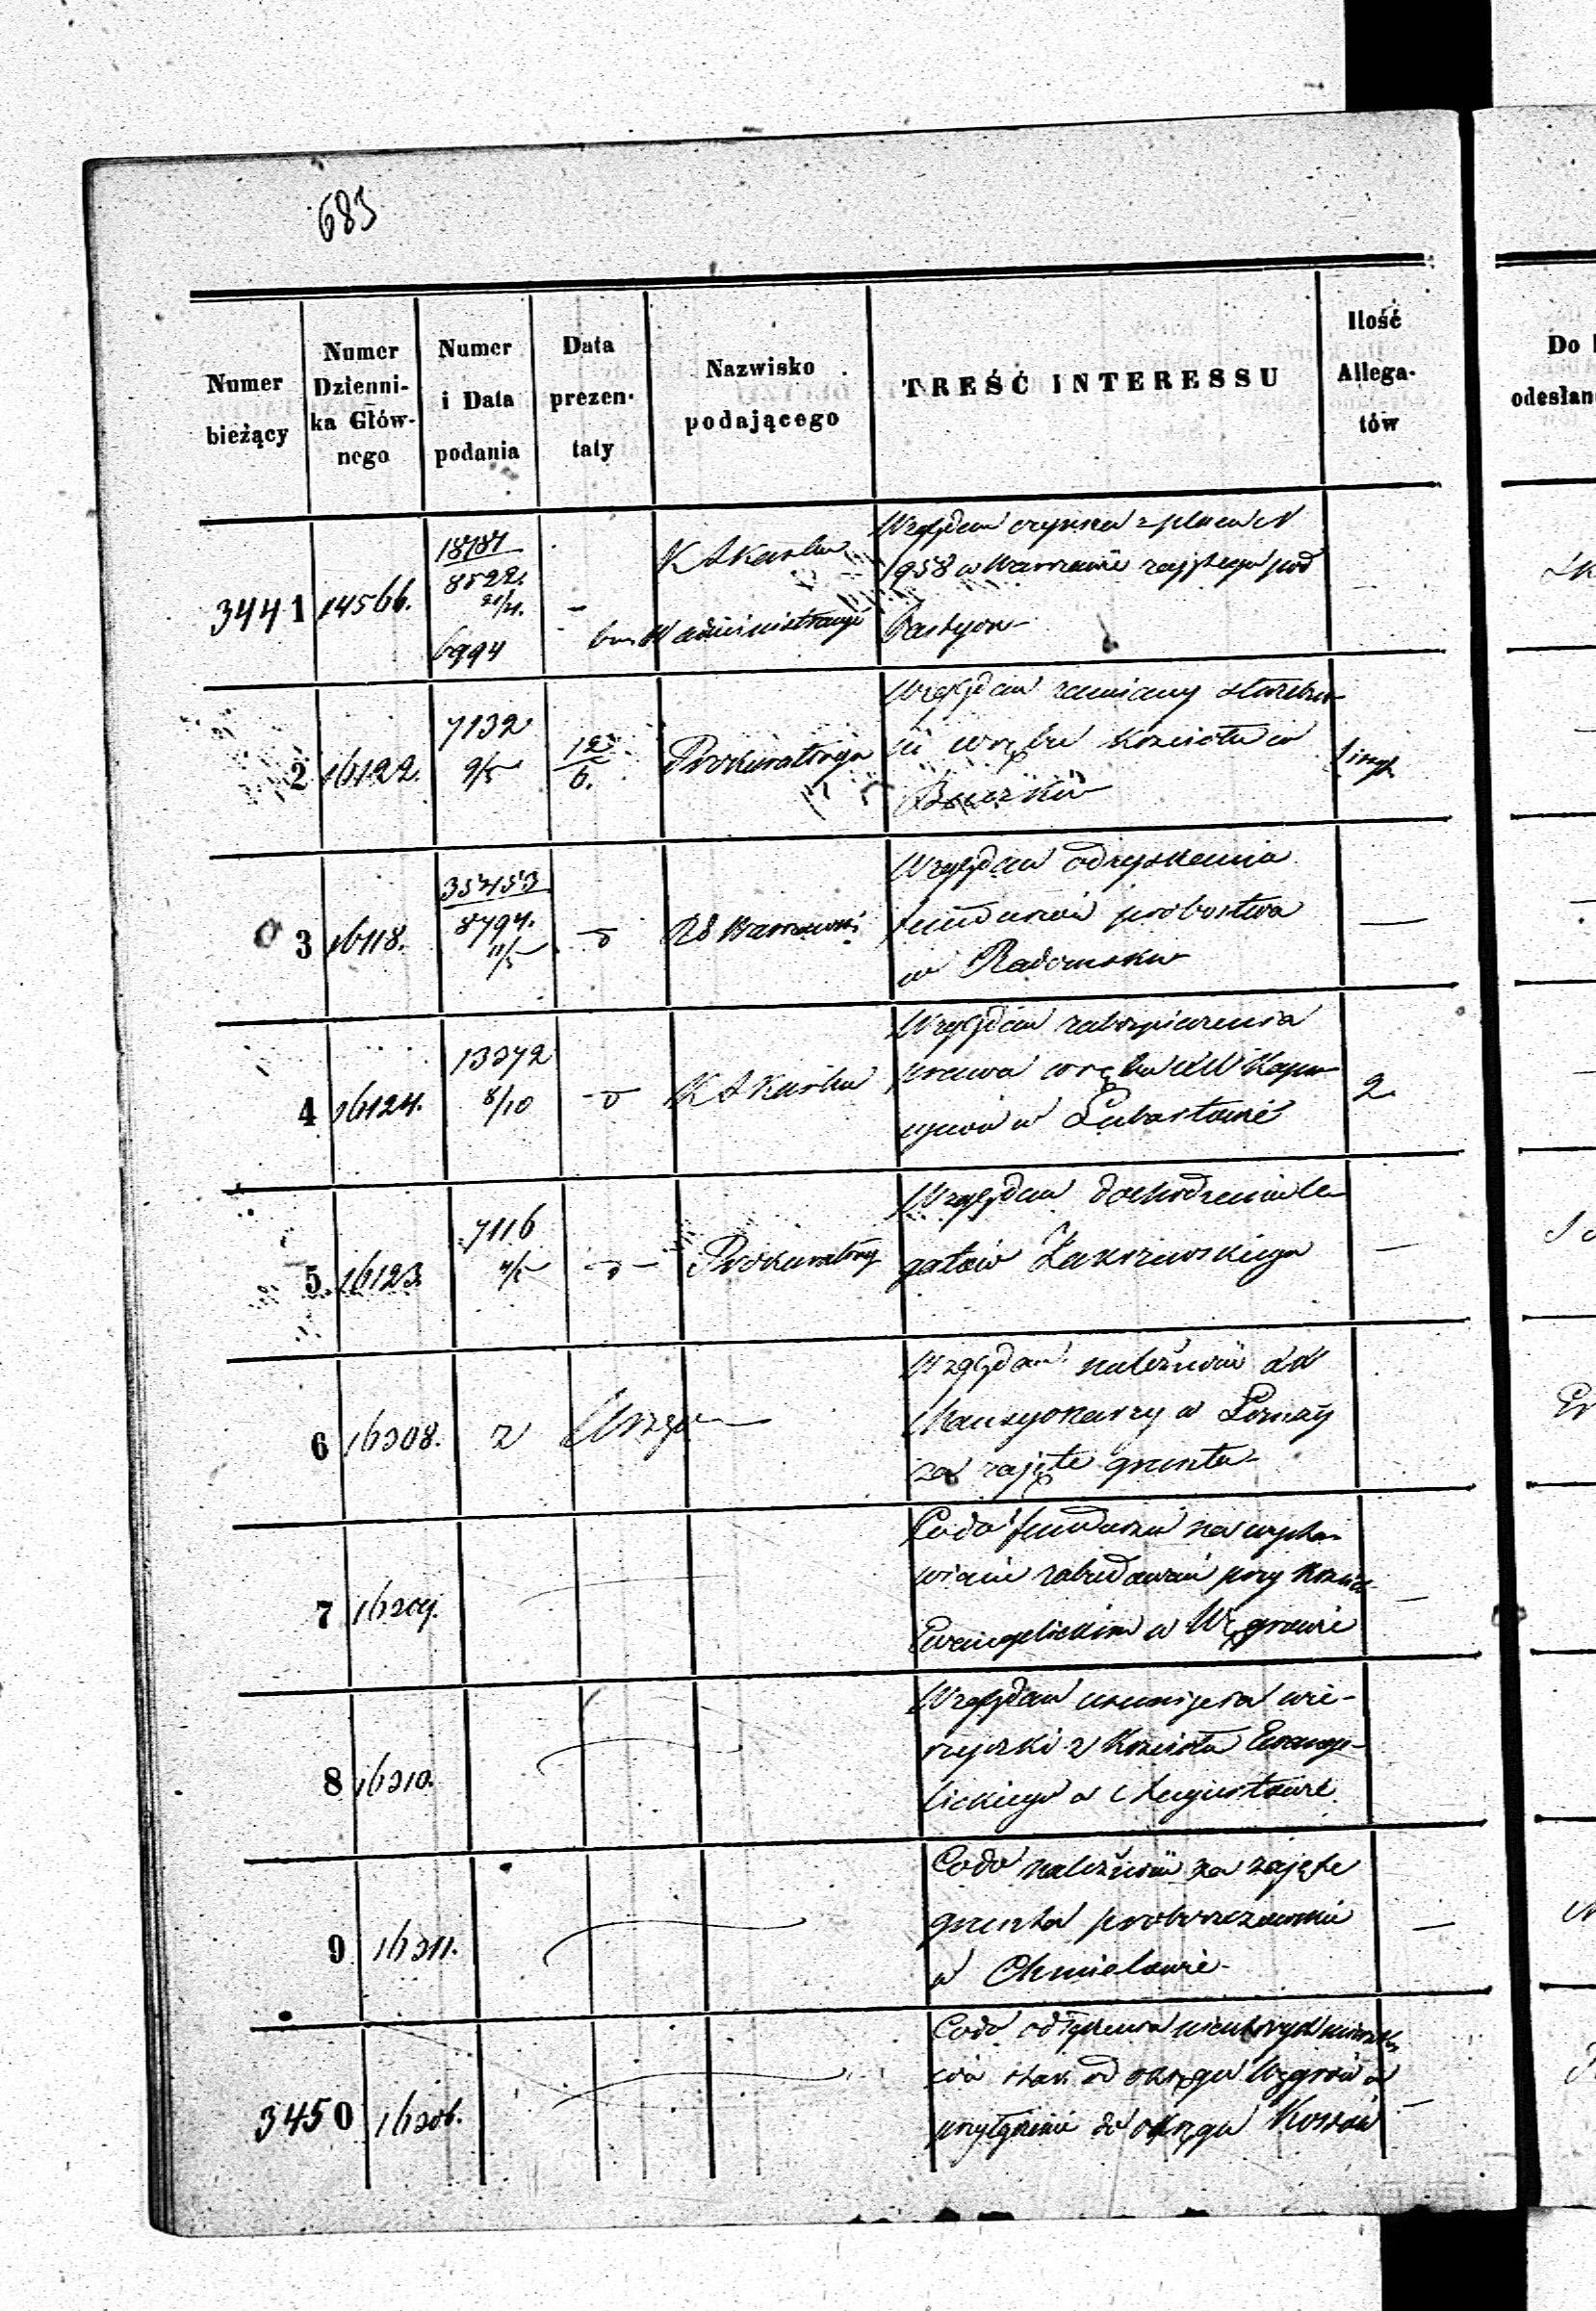 683
Numer bieżący
Numer Dzienni-
ka Głów-
nego
Numer
i Data
podania
Data
prezen-
taty
Nazwisko
podającego
TREŚĆ INTERESSU
Ilość
Allega-
tów
Do
odesłan
3441 14566. 18784
8522.
21/4.
6994
K S Karbu
W administracyi
Względem czynszu z placu N
958 w Warszawie zajętego pod
Bastyon
2 16122. 7132
9/5
12/6.
Prokuratorya
Względem zamiany służebno
ści wrębu Kościoła w
3 16118. 35453
8794.
11/5
Względem odzyskania
funduszów probostwa
w Radomsku
4 16124. 13372
8/10
K S Karbu
Względem zabezpieczenia
prawa wrębu XX Kapu
cynów w Lubartowie
2.
5. 16123. 7116
Prokuratory
Względem dochodzenia le
gatów Zakrzewskiego
6 16208. z Urzędu
Względem należności dla
Mansyonarzy w Łomży
za zajęte grunta
7 16209.
Codo funduszu na wysta
wianie zabudowań przy Kościele
Ewangelickim w Węgrowie
8 16210.
Względem usunięcia wie-
życzki z Kościoła Ewange-
lickiego w Augustowie
9 16211.
Codo należności za zajęte
grunta proboszczowskie
w Chmielowie
3450 16206.
Codo odłączenia niektórych
od okręgu Węgrów a
przyłączenie do okręgu Kossów